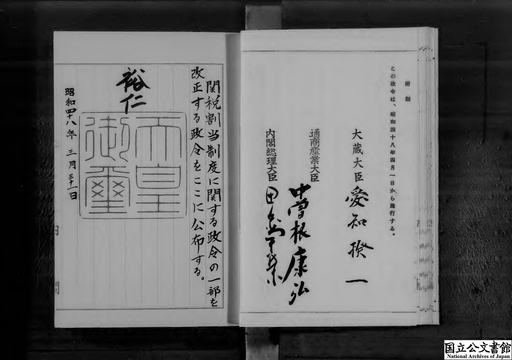 附則
この政令は、昭和四十八年四月一日から施行する。
大蔵大臣 愛知揆一
通商産業大臣 中曽根康弘
内閣総理大臣 田中角榮
関税割当制度に関する政令の一部を
改正する政令をここに公布する。
裕仁
天皇
御璽
昭和四十八年三月三十一日
国立公文書館
National Archives of Japan